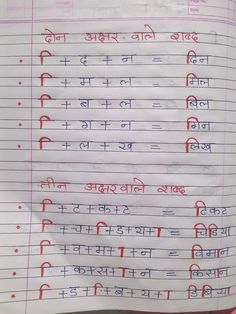 दोन अक्षर-वाले शब्द
ि + द + न = दिन
ि + म + ल = मिल
ि + ब + ल = बिल
ि + ग + न = गिन
ि + ल + ख = लिख
तीन अक्षरवाले शब्द
ि + ट + क + ट = टिकट
ि + च + ि + ड + य + ा = चिडिया
ि + व + म + ा + न = विमान
ि + क + स + ा + न = किसान
ि + ड + ि + ब + य + ा डिबिया